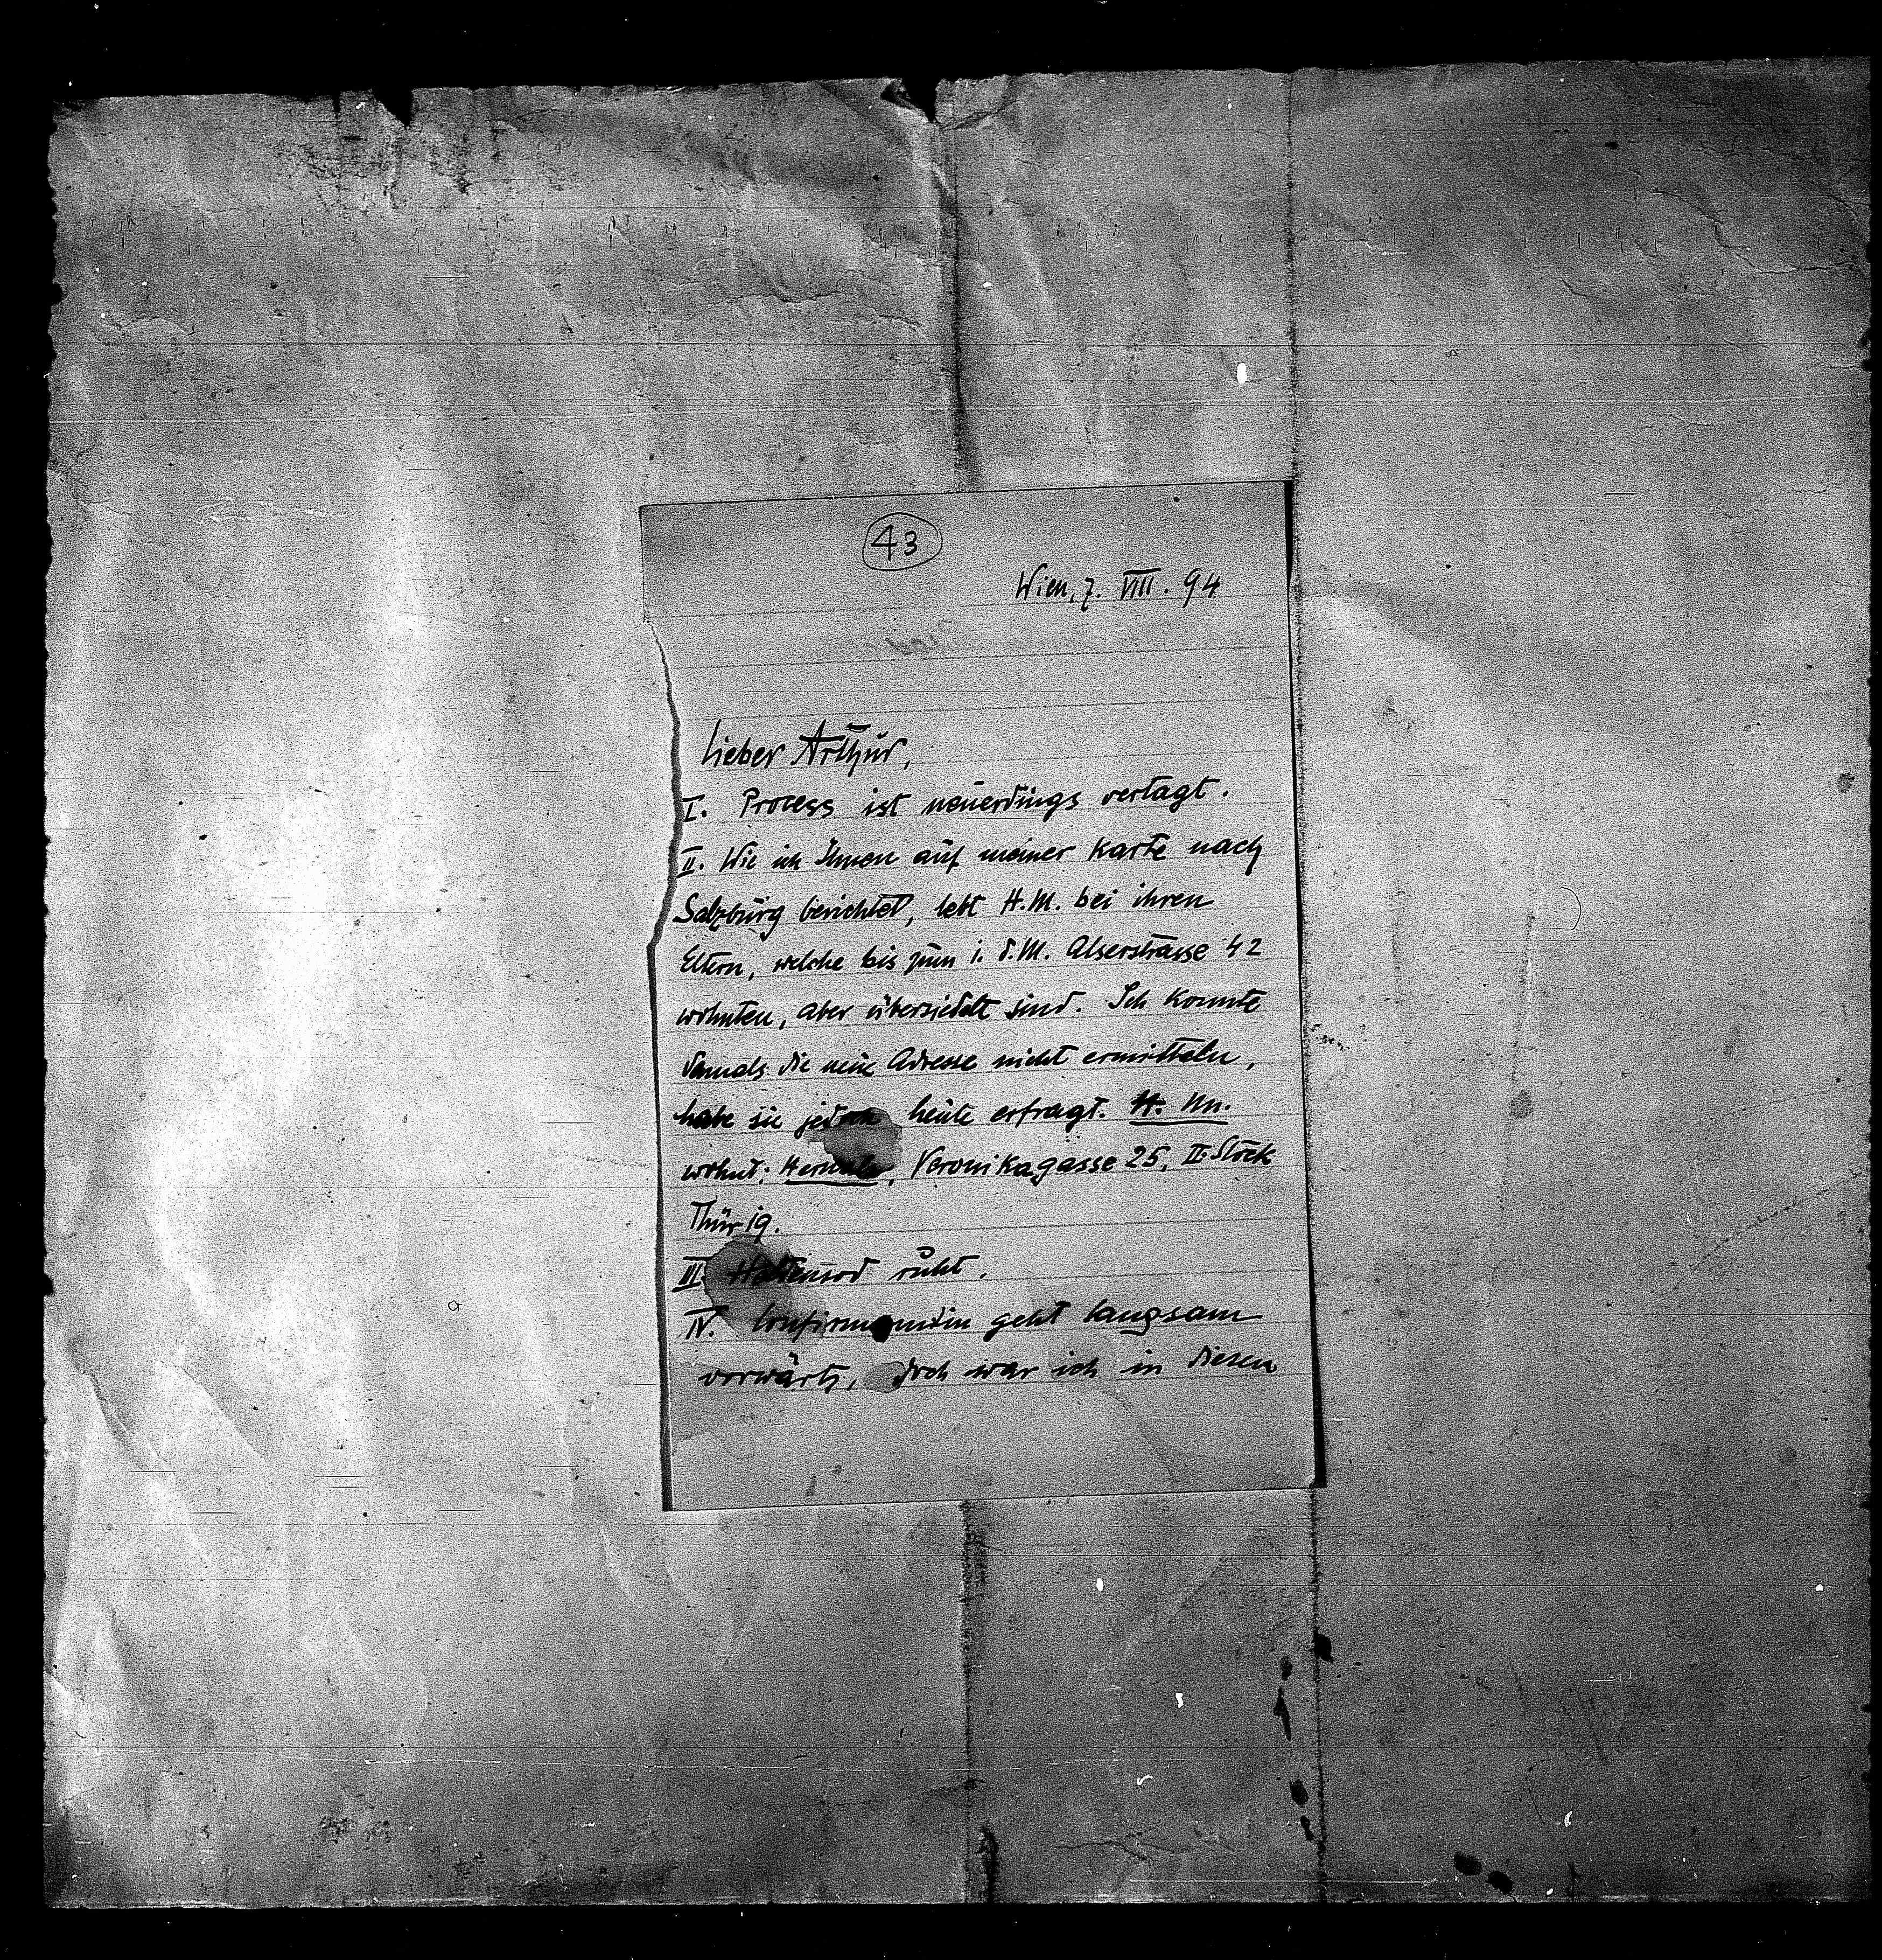 43
Wien, 7. VIII. 94
Lieber Arthur,
I. Process ist neuerdings vertagt.
II. Wie ich Ihnen auf meiner Karte nach
Salzburg berichtet, lebt H.M. bei ihren
Eltern, welche bis zum 1. d.M. Alserstrasse 42
wohnten, aber übersiedelt sind. Ich konnte
damals die neue Adresse nicht ermitteln,
habe sie jedoch heute erfragt. H. Mn.
wohnt: Hernals, Veronikagasse 25, II. Stock
Thür 19.
III. ruht.
IV. Confirmandin geht langsam
vorwärts, doch war ich in diesen